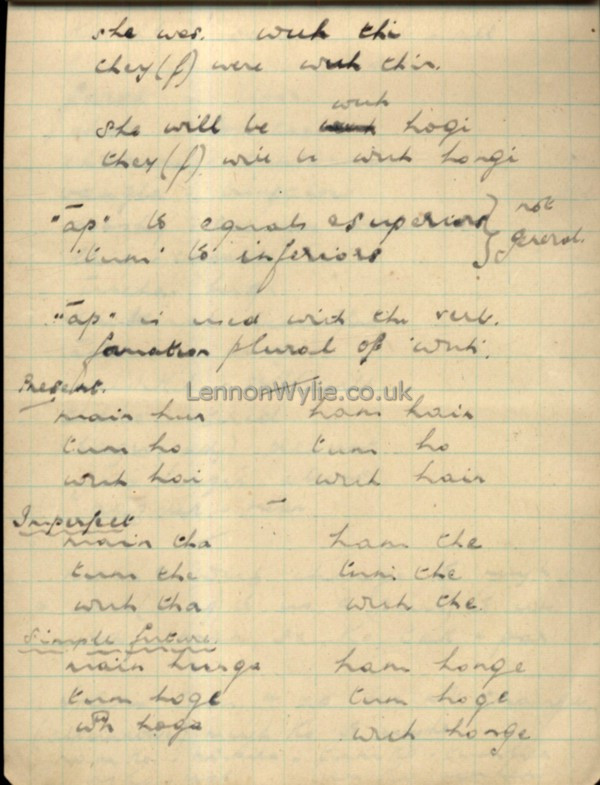 she was. wuh thi
they (f) were wuh thin.
wuh
she will be hogi
they (f) will be wuh hongi
"āp" to equals & superiors } not
'tum' to inferiors } general.
"āp" is used with the verb.
formation plural of 'wuh'.
Present.
main hun ham hain
tum ho tum ho
wuh hai wuh hain
LennonWylie.co.uk
Imperfect
main tha ham the
tum the tum the
wuh tha wuh the.
Simple future.
main hunga ham honge
tum hoge tum hoge
wh hoga wuh honge